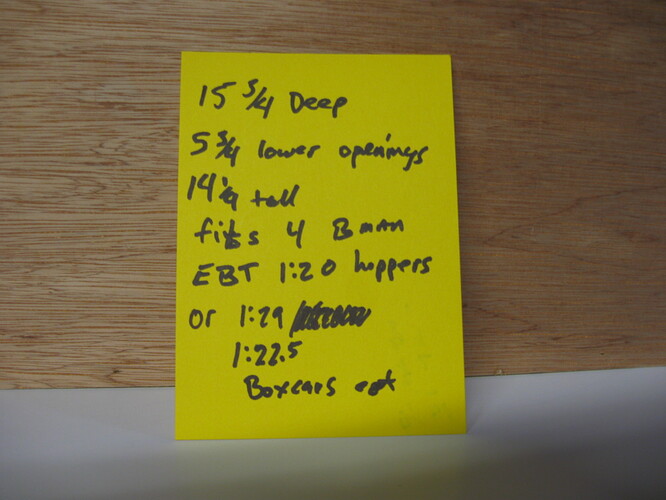 15 3/4 Deep
5 3/4 lower openings
14 1/4 tall
fits 4 Bman
EBT 1:20 hoppers
or 1:29
1:22.5
Boxcars ect